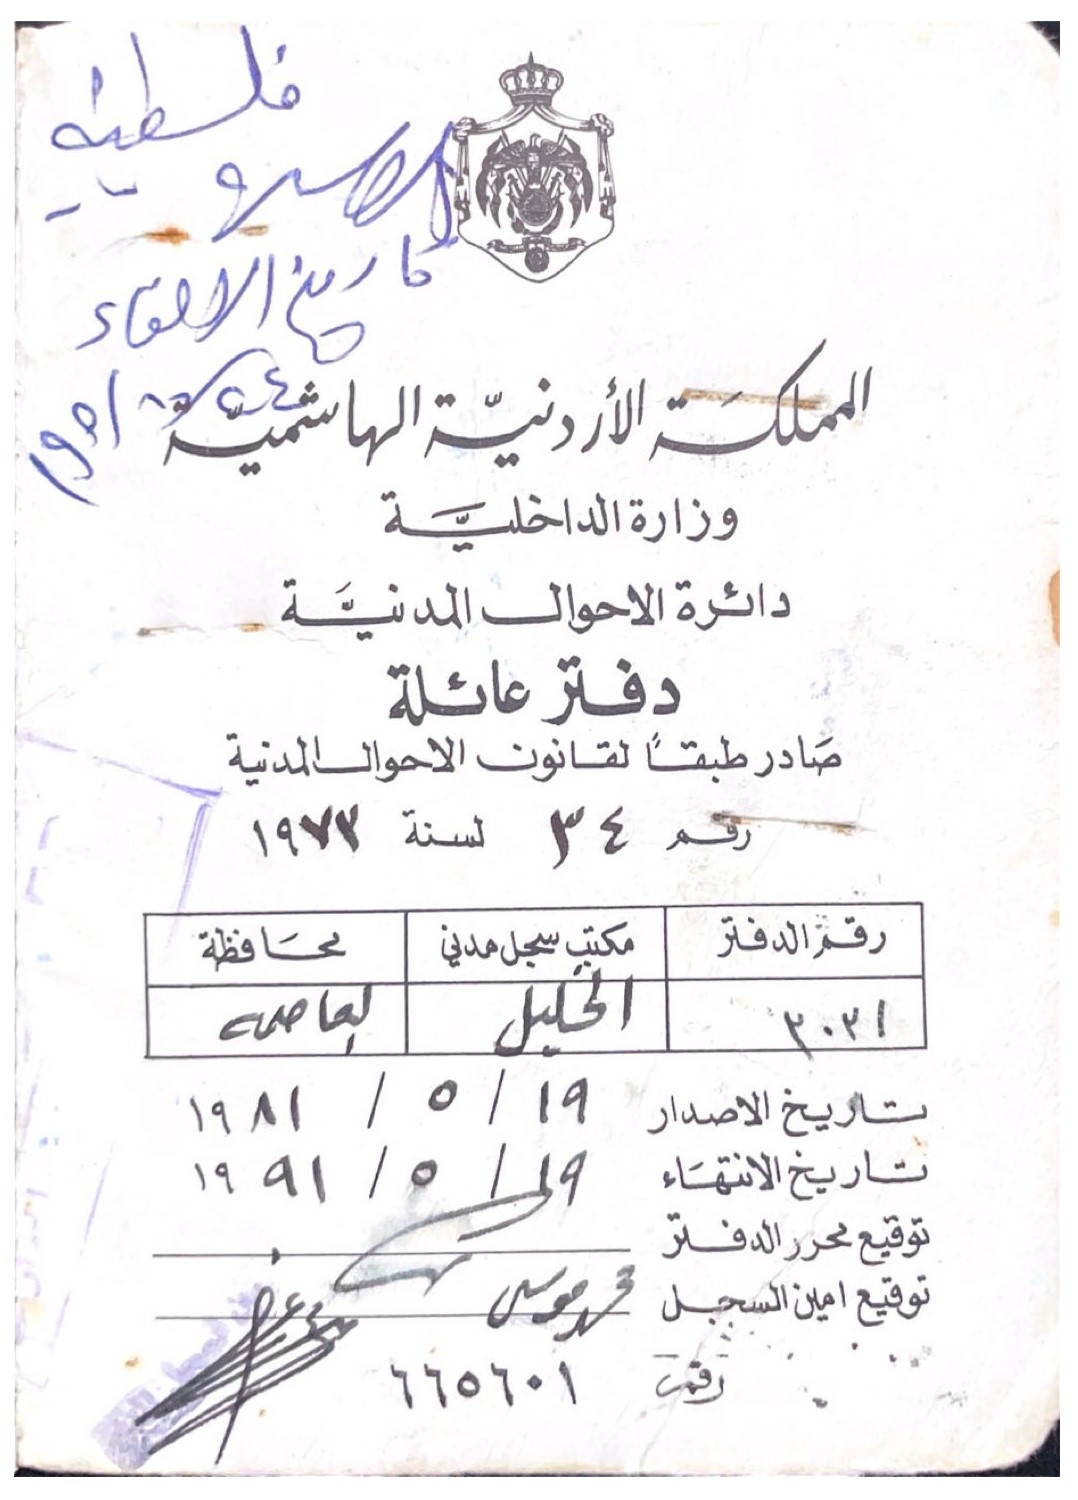 فلسطينية
تاريخ الالتقاء
المملكة الأردنيّة الهاشميّة
وزارة الداخليّة
دائرة الاحوال المدنيّة
دفتر عائلة
صادر طبقاً لقانون الاحوال المدنية
رقم ٣٤ لسنة ١٩٧٣
رقم الدفتر مكتب سجل مدني محافظة
٣٠٣١ الخليل العاصمة
تاريخ الاصدار ١٩ / ٥ / ١٩٨١
تاريخ الانتهاء ١٩ / ٥ / ١٩٩١
توقيع محرر الدفتر
توقيع امين السجل محمد موسى
رقم ٦٦٥٦٠١